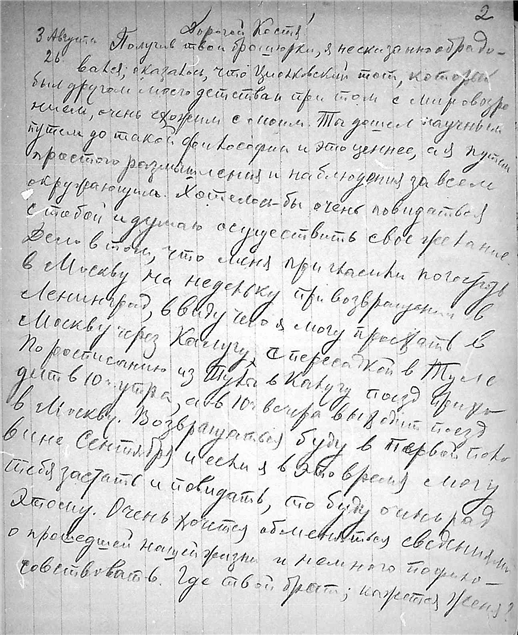 2
Дорогой Костя!
3 Августа Получив твои брошюрки, я несказанно обрадо-
26 вался, оказалось, что Циолковский тот, который
был другом моего детства и при том с мировоззре
нием, очень схожим с моим. Ты дошел научным
путем до такой философии и это ценнее, а я путем
простого размышления и наблюдения за всем
окружающим. Хотелось-бы очень повидаться
с тобой и думаю осуществить свое желание.
Дело в том, что меня пригласили погостить
в Москву на недельку при возвращении в
Ленинград, ввиду чего я могу проехать в
Москву через Калугу, с пересадкой в Туле
По росписанию из Тулы в Калугу поезд прихо-
дит в 10ч утра, а в 10ч вечера выходит поезд
в Москву. Возвращаться буду в первой поло
вине Сентября и если я в это время могу
тебя застать и повидать, то буду очень рад
этому. Очень хочется обменяться сведениями
о прошедшей нашей жизни и немного пофило-
совствовать. Где твой брат; кажется Женя?